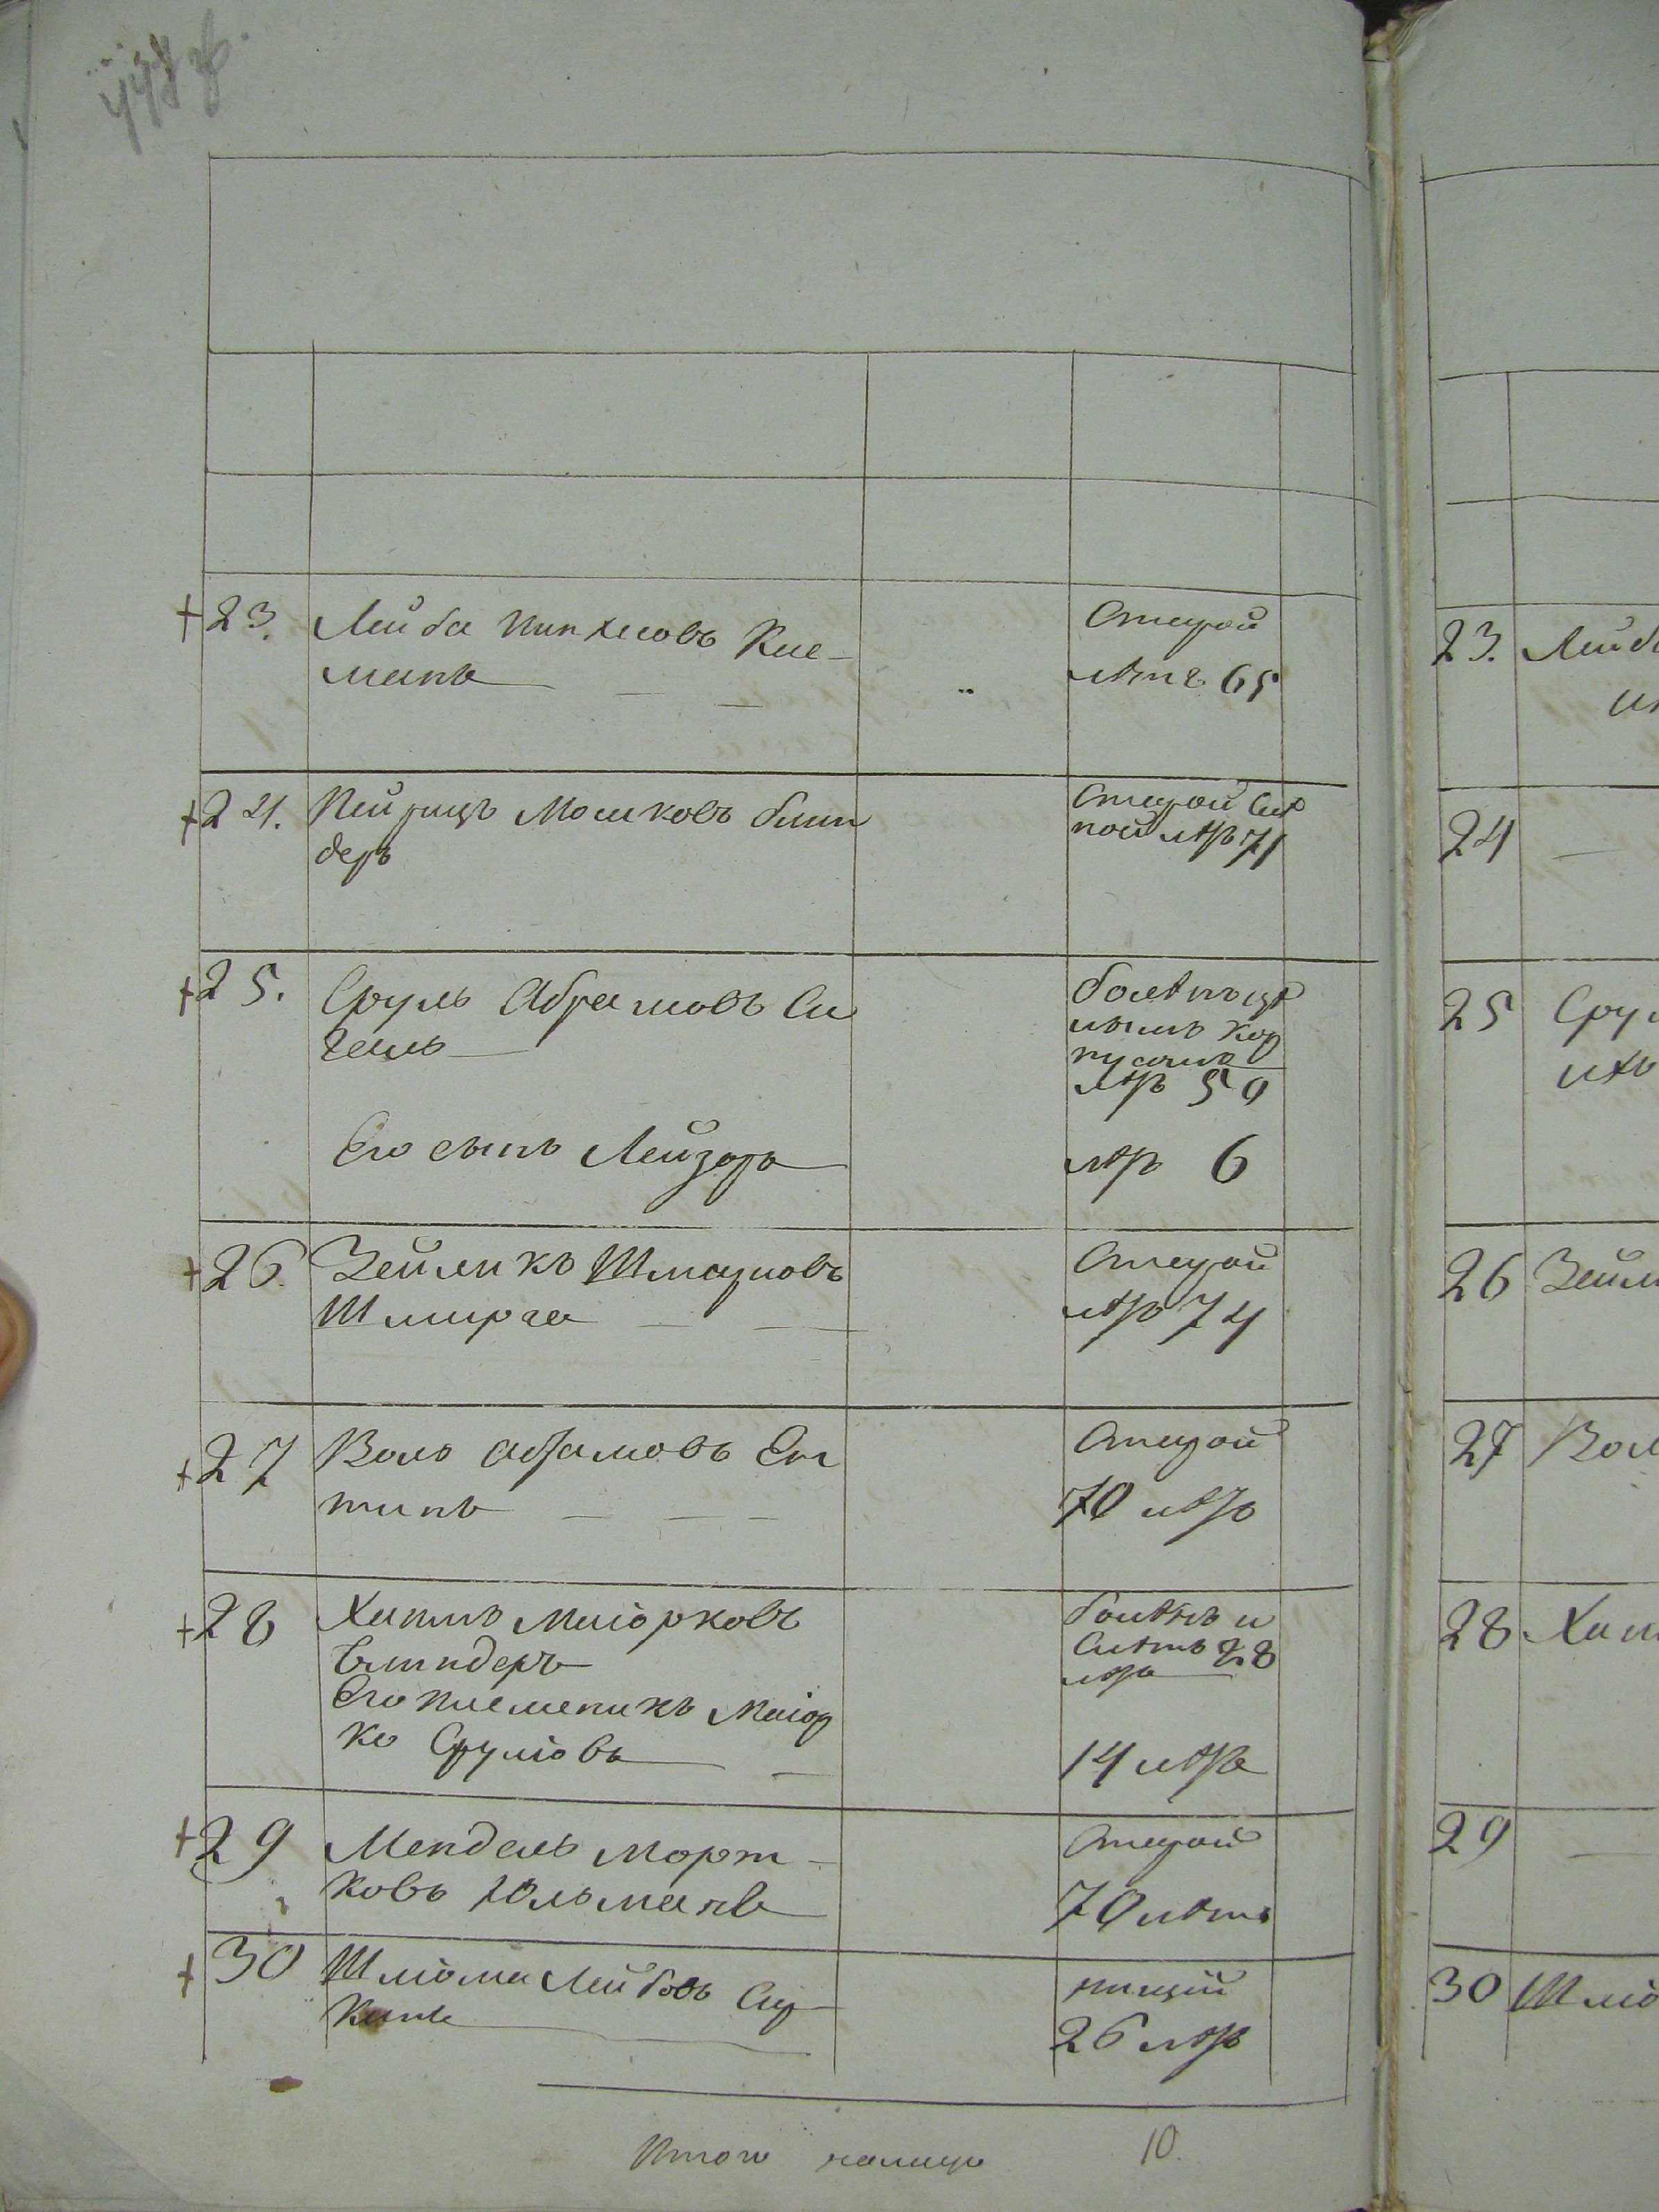 +23. Лейба Пинхесовъ Кле-
манъ
Старой
лѣтъ 65
+24. Мошковъ Блин
деръ
Старой слѣ
пой лѣтъ 71
+25. Сруль Абрамовъ Си
галь
болѣнъ цѣ
лымъ кор
пусомъ
лѣтъ 50
Его сынъ Лейзоръ
лѣтъ 6
+26. Зейликъ Шмауновъ
Шмирга
Старой
лѣтъ 74
+27 Воль Абрамовъ Еп
тинъ
Старой
70 лѣтъ
+28 Хаимъ Маіорковъ
Блиндеръ
болѣнъ и
слѣпъ 28
лѣтъ
Его племеникъ Маіор
ко Сруліовъ
14 лѣтъ
+29 Мендель Морт-
ковъ Юльманъ
Старой
70 лѣтъ
+30 Шліома Лейбовъ Сур
кинъ
нищій
26 лѣтъ
Итого налицо 10.
23. Лейб
24
25 Срул
26 Зейл
27 Вол
28 Хаи
29
30 Шліо